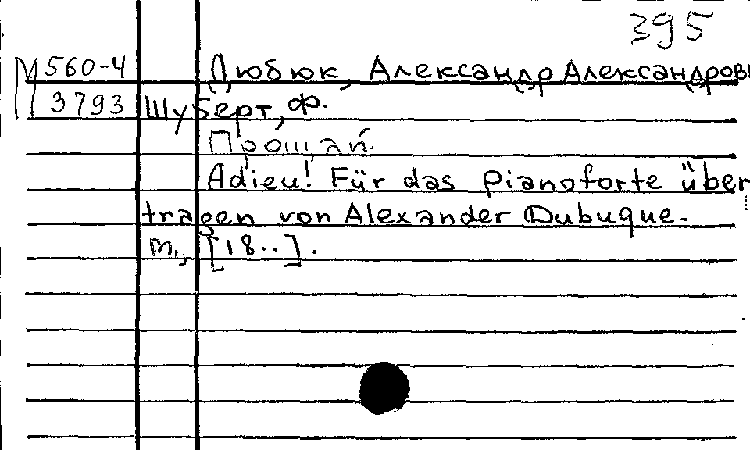 395
М 560-4 Дюбюк, Александр Александров
3793 Шуберт, Ф.
Прощай.
Adieu! Für das Pianoforte über
tragen von Alexander Dubuque.
м., [18..].